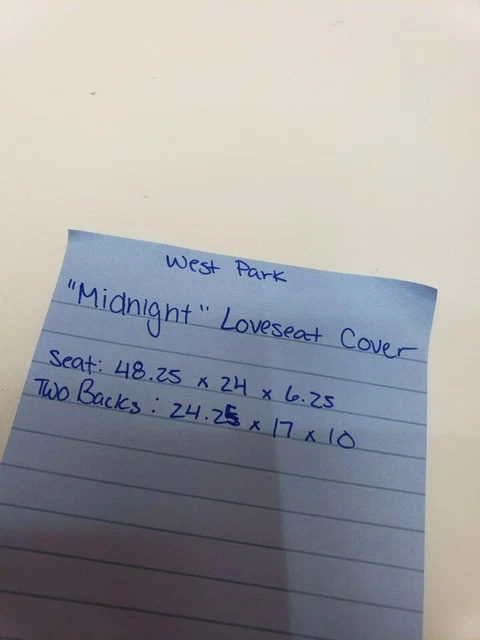 West Park
"Midnight" Loveseat Cover
Seat: 48.25 x 24 x 6.25
Two Backs: 24.25 x 17 x 10